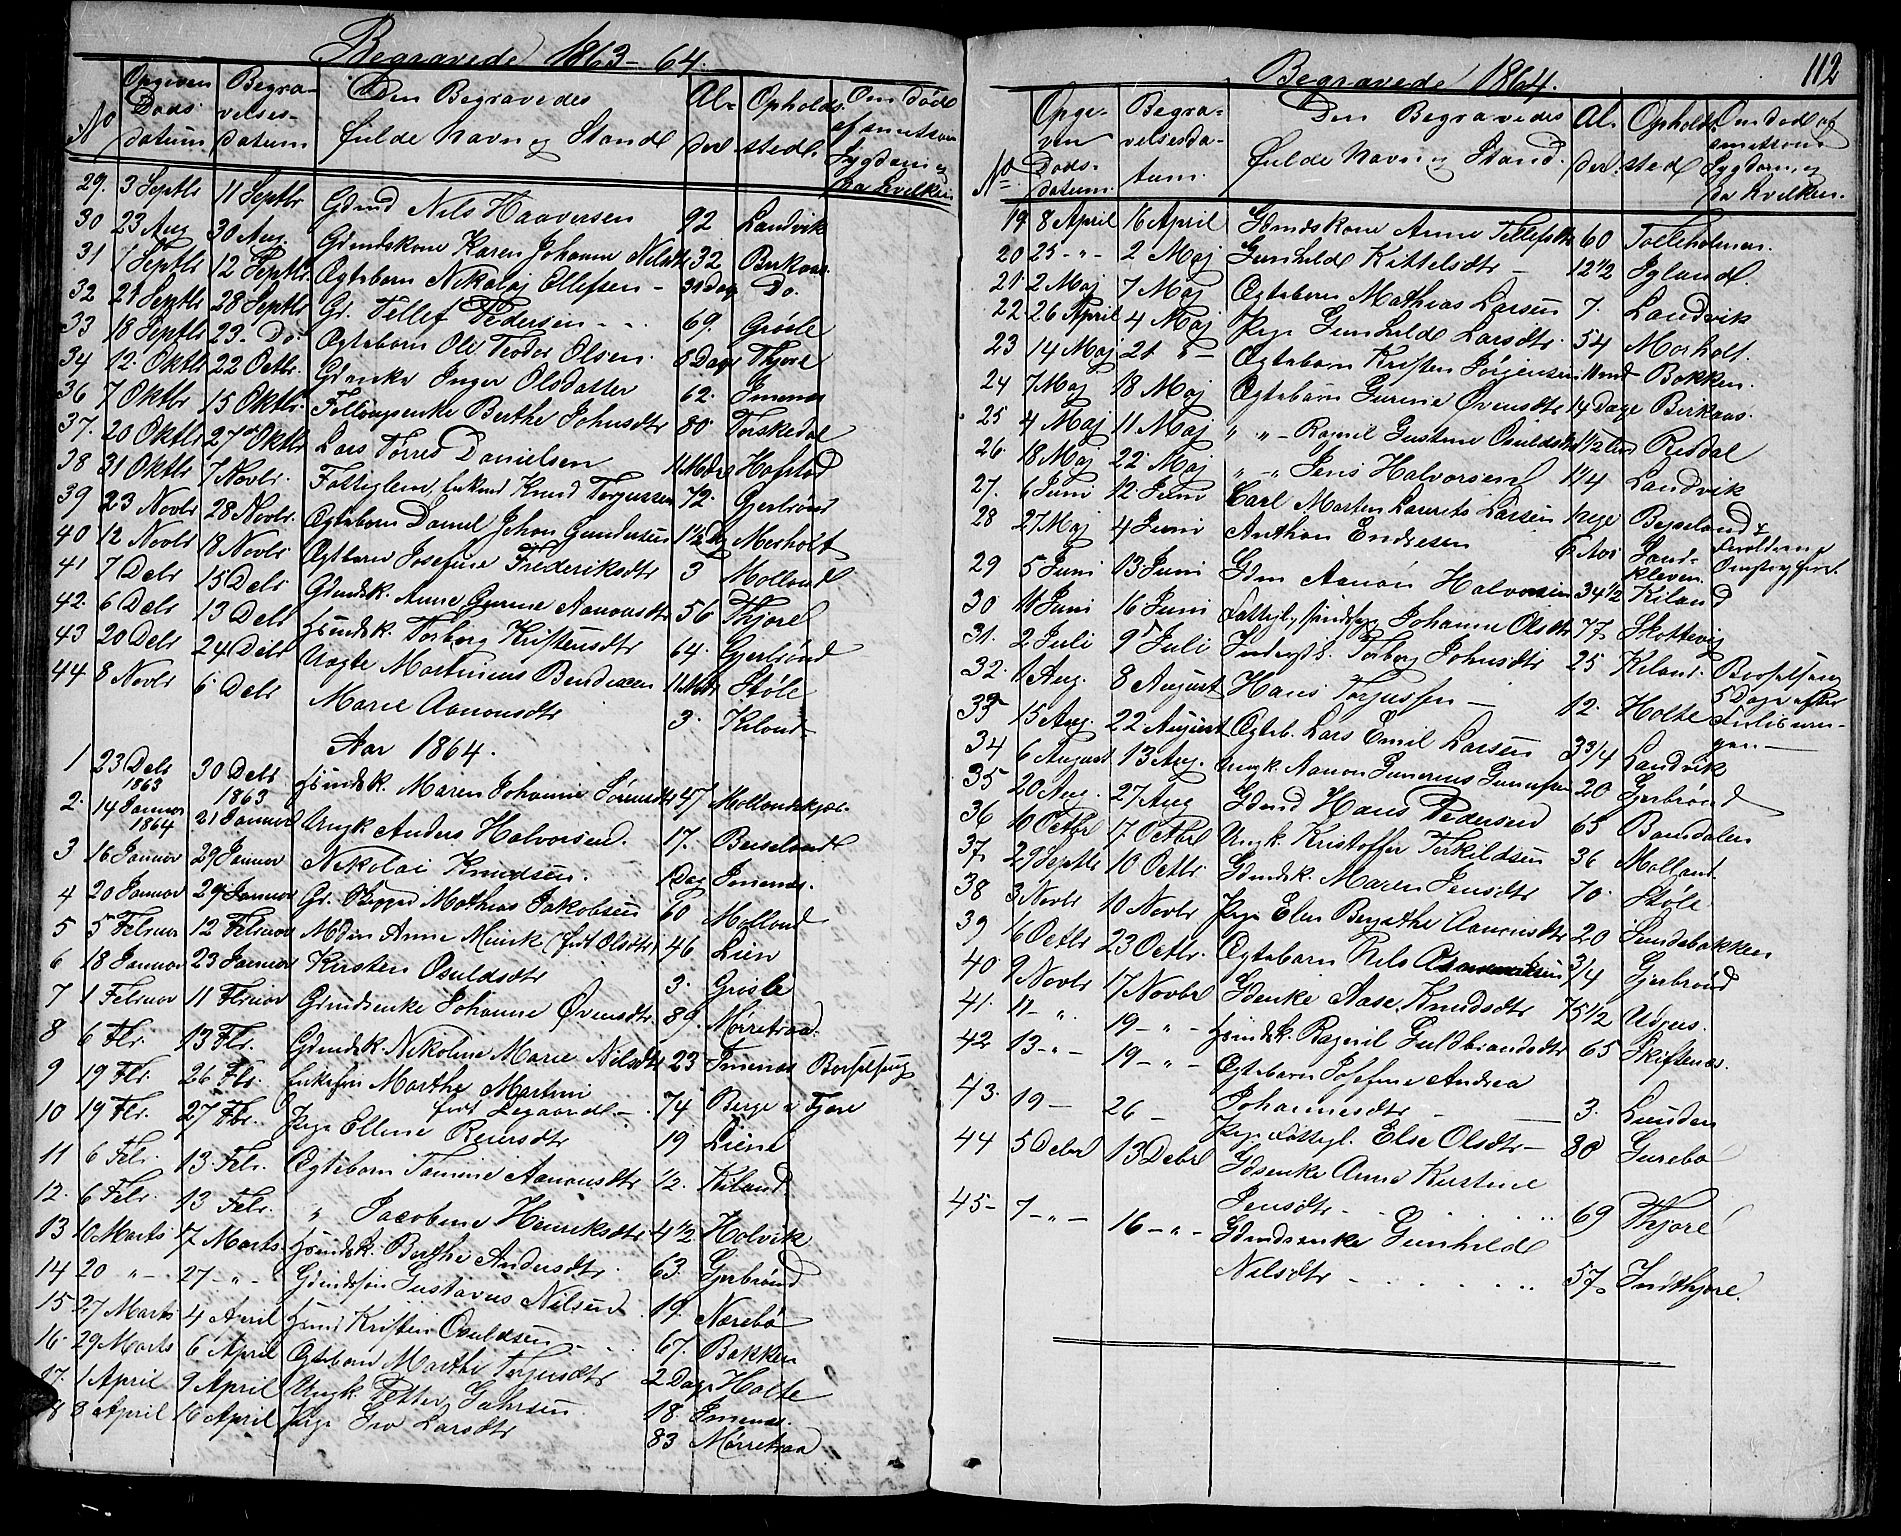 Begravede 1863-64.
No
Opgiven Døds datum
Begravelses-datum
Den Begravedes fulde Navn og Stand
Alder
Opholdssted.
Om død af smitsom Sygdom og da hvilken
29. 3 Septbr 11 Septbr Gdmd Nils Haaversen 92 Landvik
30 23 Aug 30 Aug. Gdmdskone Karen Johanne Nilsdtr 32 Birkaas
31 7 Septbr 12 Septbr. Ægtebarn Nikolaj Ellefsen - 21 Dag Do.
32 21 Septbr 28 Septbr Gr. Tellef Pedersen - - 69. Grøsle
33 18 Septbr 23. Do. Ægtebarn Ole Teodor Olsen. 5 Dage Thjore
34 12. Oktbr 22 Octbr. Gdmenke Inger Olsdatter 62. Imenæs
36 7 Oktbr 15 Oktbr. Føllougsenke Berthe Johnsdtr 80 Torskedal
37. 20 Oktbr 27 Oktbr Lars Torred Danielsen 11 Mdr Hafstad
38 31 Oktbr 7 Novbr. Fattiglem, Enkmd Knud Torjussen 72. Gjerbrønd
39 23 Novbr 28 Novbr. Ægtebarn Daniel Johan Gundersen 1½ Morholt
40 12 Novbr 18 Novbr Ægtebarn Josefine Frederiksdtr 3 Molland
41 7 Debr 15 Debr Gdmdsk. Anne Gurine Aanonsdtr 56 Thjore
42. 6 Debr 13 Debr Hsmdsk. Torborg Kristensdtr 64. Gjerbrønd
43 20 Debr 24 Debr Uægte Martinius Bendixen 11 Mdr Støle
44 8 Novbr 6 Debr Marie Aanonsdtr 3. Kiland
Aar 1864.
1 23 Debr 1863 30 Debr 1863 Hsmdsk. Maren Johanne Sørensdtr 47 Mollandskjæl
2. 14 Januar 1864 21 Januar Ungk Anders Halvorsen. 17. Beiseland
3 16 Januar 29 Januar Nikolai Knudsen. 1 Dag Imenæs.
4 20 Januar 29 Januar Gr. Mathias Jakobsen 60 Molland
5 5 Februar 12 Februar Mdm Anne Munk (født Olsdtr) 46 Lien
6 18 Januar 23 Januar Kirsten Osuldsdtr 3. Grøsle
7 1 Februar 11 Februar Gdmdsenke Johanne Øvensdtr. 89. Nørretraa.
8 6 Fbr. 13 Fbr. Gdmdsk. Nikoline Marie Nilsdtr 23 Imenæs Barselseng
9 19 Fbr. 26 Fbr. Enkefru Marthe Martini født Legaard - 74 Berge i Fjære
10 19 Fbr. 27 Fbr. Pige Ellene Reiersdtr 19 Liene
11 6 Febr. 13 Febr. Ægtebarn Tomine Aanonsdtr ½. Kiland
12. 6 Febr. 13 Febr. " Jacobine Henriksdtr 4½ Holvik
13 10 Marts 17 Marts. Hsmdsk. Berthe Andersdtr. 63. Gjerbrønd
14 20 " - 27 - " - Gdmdssøn Gustavus Nilsen 19. Nærebø
15. 27 Marts 4 April Hsmd Kristen Osuldsen 67. Bakken
16. 29 Marts 6 April Ægtebarn Marthe Terjesdtr 2 Dage Holte
17. 1 April 9 April Ungk. Petter Gahrsen 18. Imenæs.
18 8 April 16 April Pige Gro Larsdtr 83 Nørretraa
Begravede 1864.
112
No
Opgeven Døds-datum.
Begravelsesdatum.
Den Begravedes fulde Navn og Stand.
Alder.
Opholdssted
Om død af smitsom Sygdom og da hvilken.
19 8 April 16 April Gdmdskone Anne Tellefsdtr 60 Tolleholmen.
20 25 - " - 2 Maj Gunhilde Kittelsdtr - 12½ Igland.
21. 2 Maj 7 Maj Ægtebarn Mathias Larsen 7. Landvik
22. 26 April 4 Maj Pige Gunhilde Larsdtr. 54 Morholt.
23 14 Maj 21 " - Ægtebarn Kristen Jørgensen Bakken.
24 7 Maj 18 Maj Ægtebarn Gurine Øvensdtr 14 Dage Birkaas.
25 4 Maj 11 Maj " " - Ragnil Gustine Osuldsdtr 1½ Reddal
26. 18 Maj 22 Maj " " Jens Halvorsen 1¼ Landvik
27. 6 Juni 12 Juni Carl Morten Laurits Larsen Beiseland
28 27 Maj 4 Juni Anthon Endresen 6 Aar Landkleven.
29 5 Juni 13 Juni Gdm Aanon Halvorsen 34½ Kiland
30 11 Juni 16 Juni Fattigl. Johanne Olsdtr 77. Skottevig
31. 2 Juli 9 Juli Inderstk. Torborg Johnsdtr 25 Kiland. Barselseng 5 Dage efter
32. 1 Aug. 8 August Hans Torjussen - 12. Holte
33 15 Aug. 22 August Ægteb. Lars Emil Larsen 3¾ Landvik
34 6 August 13 Aug. Ungk. Aanon Gunerius Gundersen 20 Gjerbrønd
35 20 Aug. 27 Aug Gdmd Hans Pedersen 65 Bamdalen
36 10 Octbr 17 Octbr Ungk. Kristoffer Terkildsen 36 Molland.
37. 29 Septbr 10 Octbr. Gdmdsk. Maren Jensdtr 70. Støle
38 3 Novbr 10 Novbr Pige Elen Bergithe Aanonsdtr 20 Sundebakken
39 16 Octbr 23 Octbr. Ægtebarn Nils 3/4 Gjerbrønd
40 9 Novbr 17 Novbr Gdenke Aase Knudsdtr 75½ Udgaas.
41. 11 - ". 19 - " - Hsmdsk. Ragnil Guldbrandsdtr 65 Skiftenæs.
42 13 - " - 19 - " - Ægtebarn Josefine Andrea Johannesdtr - 3. Lunden
43. 19 - 26 - Pige Fattigl. Else Olsdtr - 80 Gurebo
44 5 Debr 13 Debr Gdsenke Anne Kirstine Jensdtr - 69 Thjore
45 - 7 - " - 16 - " - Gdmdsenke Gunhild Nilsdtr - 57. Indthjore.